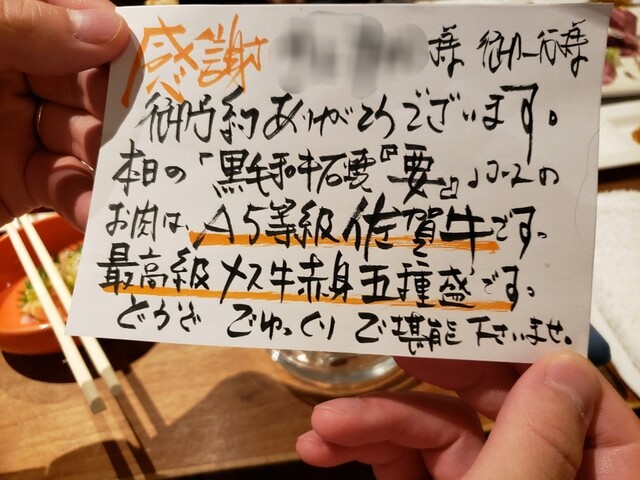 感謝 様 御一行様
御予約ありがとうございます。
本日の「黒毛和牛石焼『要』」コースの
お肉は、A5等級佐賀牛です。
最高級メス牛赤身五種盛です。
どうぞ ごゆっくり ご堪能下さいませ。